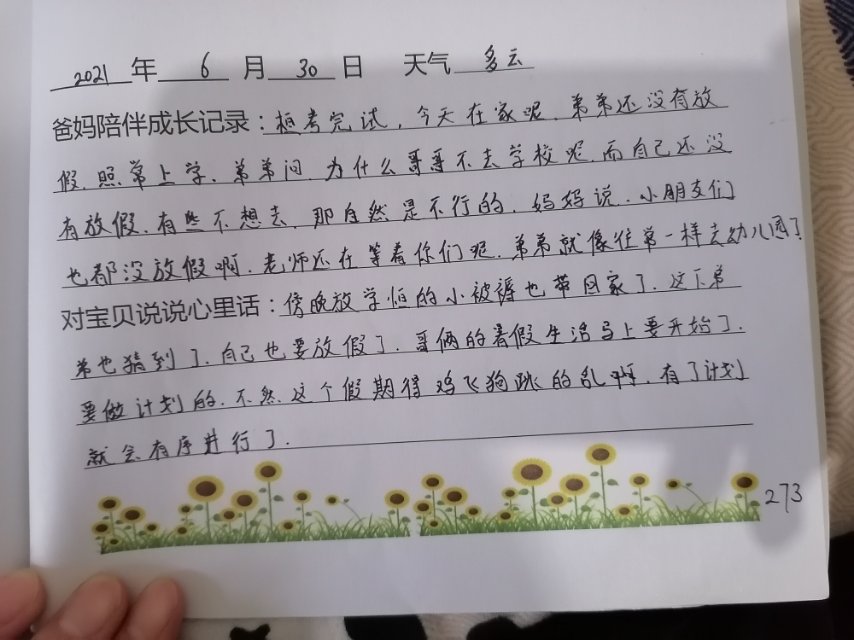 2021 年 6 月 30 日 天气 多云
爸妈陪伴成长记录：恒考完试，今天在家呢，弟弟还没有放
假，照常上学，弟弟问，为什么哥哥不去学校呢，而自己还没
有放假，有些不想去，那自然是不行的，妈妈说，小朋友们
也都没放假啊，老师还在等着你们呢，弟弟就像往常一样去幼儿园了
对宝贝说说心里话：傍晚放学恒的小被褥也带回家了，这下弟
弟也猜到了，自己也要放假了，哥俩的暑假生活马上要开始了，
要做计划的，不然，这个假期得鸡飞狗跳的乱啊，有了计划
就会有序进行了.
273